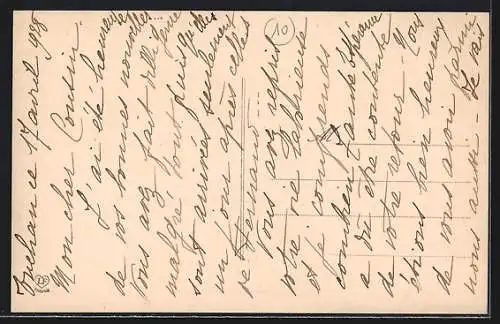 10
17 avril 1928
Mon cher Cousin
J'ai été heureuse
de vos bonnes nouvelles...
Vous avez fait
malgré tout puis qu'
sont arrivés seulement
un jour après celles
de Fernand...
Vous avez repris
votre vie
et je comprends
combien Tante
a dû être contente
de votre retour - Nous
étions bien heureux
de vous avoir
nous aussi - Je vais